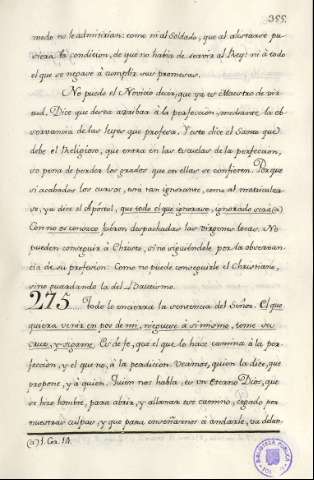 355.
modo no le admitirian: como ni al Soldado, que al alistarse pu-
siera la condicion, de que no habia de servir al Rey: ni à todo
el que se negare à cumplir sus promesas.
No puede el Novicio decir, que ya es Maestro de vir-
tud. Dice que desea arribar à la perfeccion, mediante la ob-
servancia de las leyes que profesa. Y esto dice el Santo que
debe el Religioso, que entra en las escuelas de la perfeccion,
so pena de perder los grados que en ellas se confieren. Porque
si acabados los cursos, està tan ignorante, como al matricular-
se, ya dice el Apostol, que todo el que ignorare, ignorado serà (a)
Con no os conozco fueron despachadas las virgenes locas. No
pueden conseguir à Christo, sino siguiendole por la observan-
cia de su profesion: Como no puede conseguirle el Christiano,
sino guardando la del Bautismo.
275 Todo lo encierra la sentencia del Señor. El que
quiera venir en pos de mi, nieguese à si mismo, tome su
cruz, y sigame. Es de fe, que el que lo hace camina à la per-
feccion, y el que no, à la perdicion. Veamos, quien la dice, que
propone, y à quien. Quien nos habla, es un Eterno Dios, que
se hizo hombre, para abrir, y allanar este camino, cegado por
nuestras culpas, y que para enseñarnos à andarle, va delan-
(a) 1. Cor. 14.
BIBLIOTECA PUBLICA